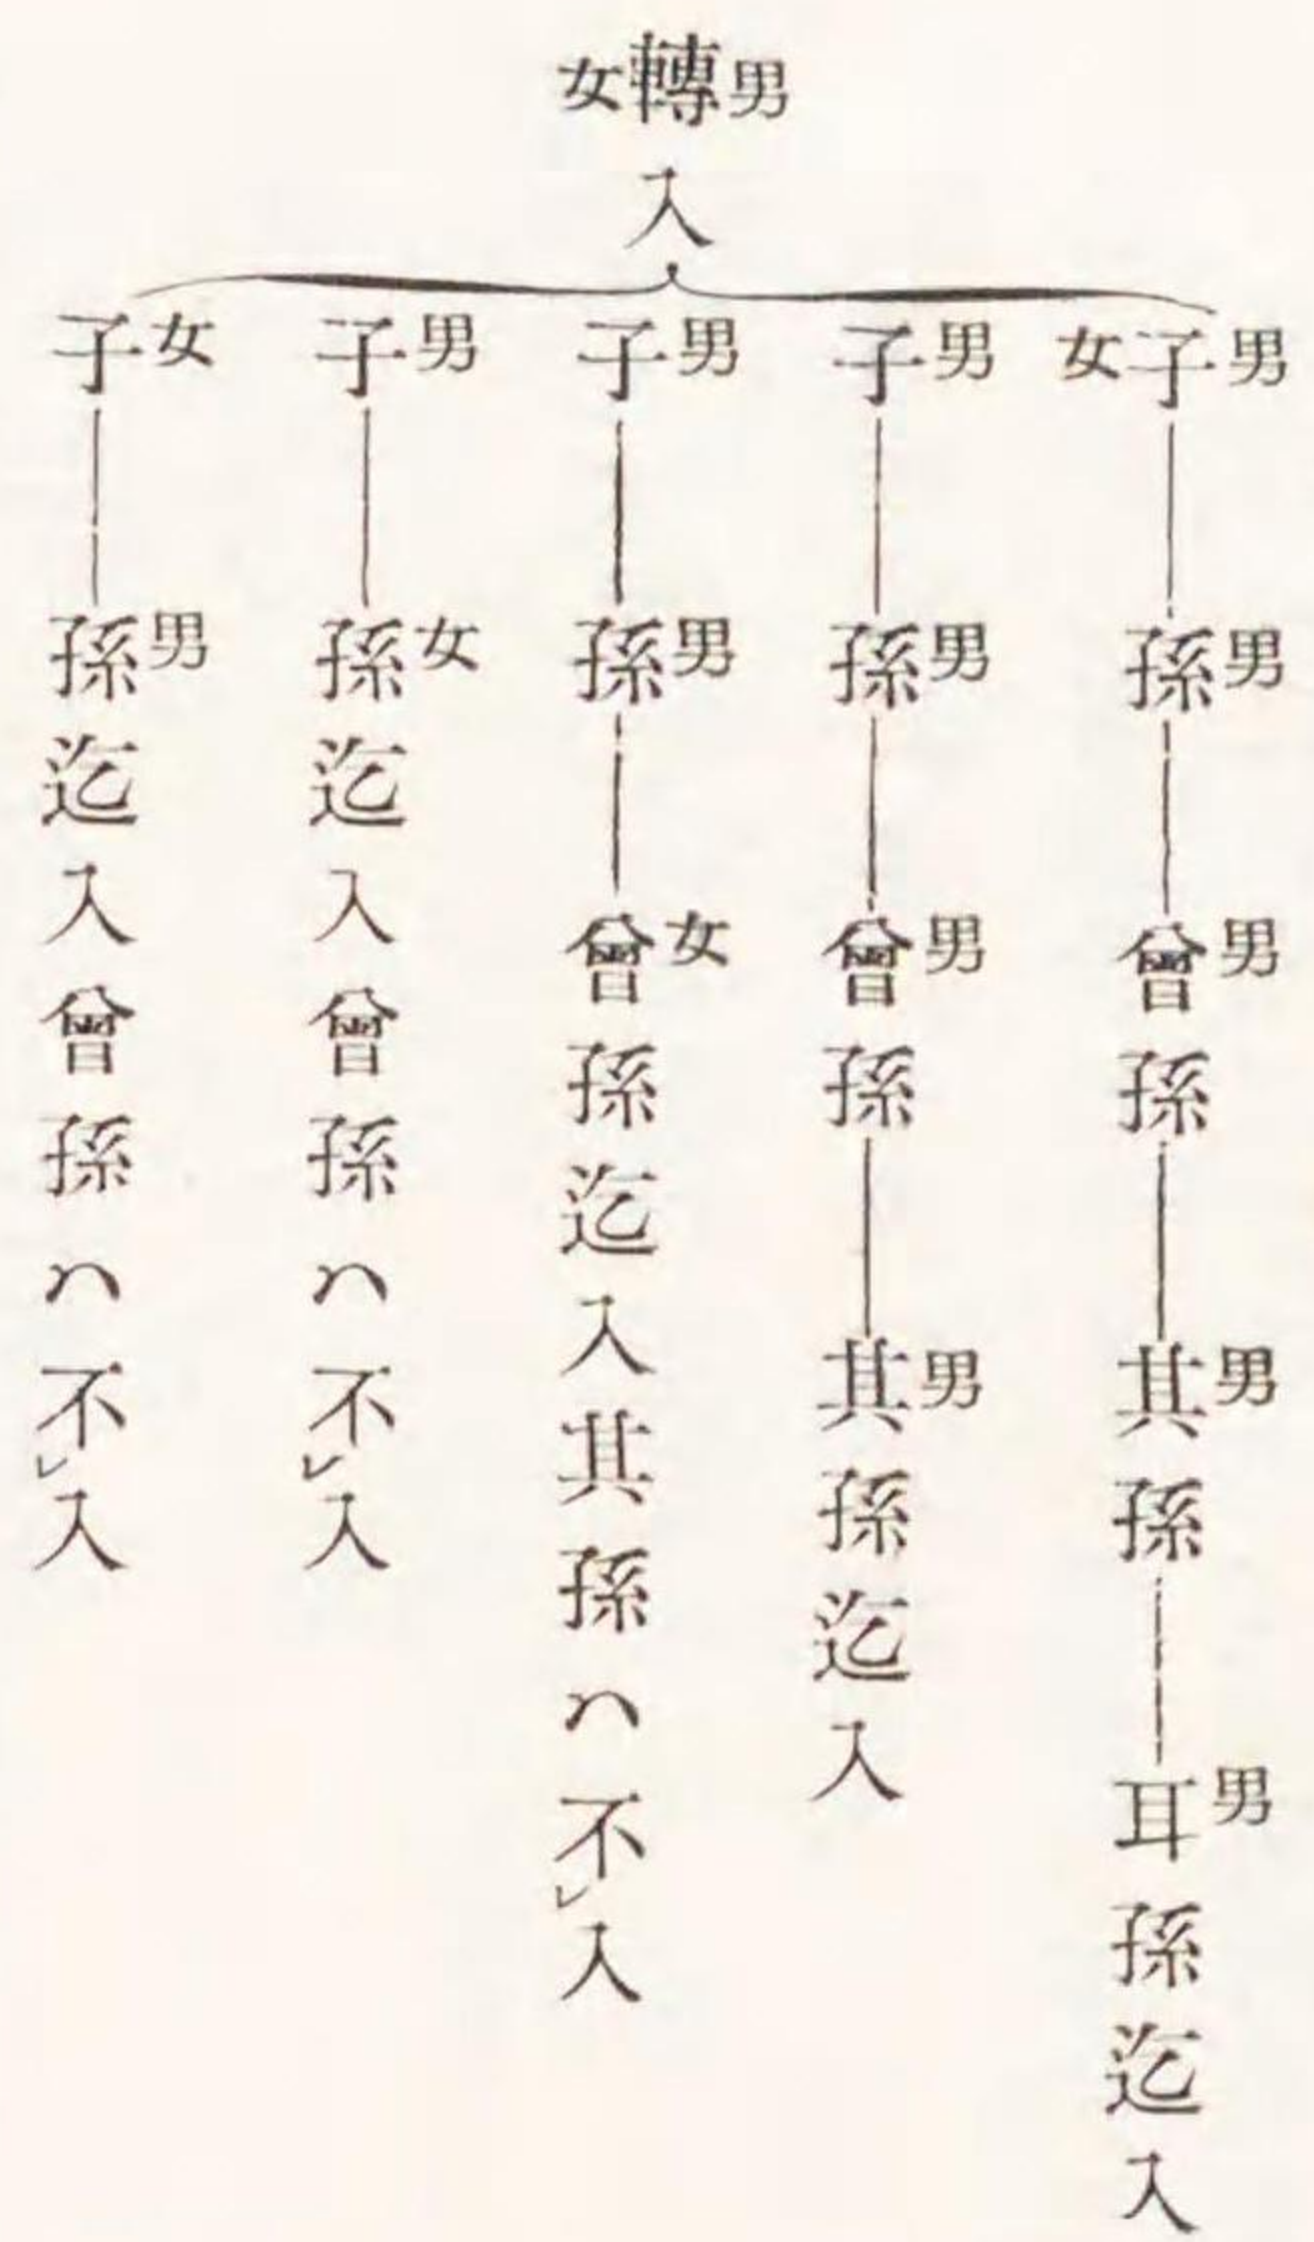 女轉男
入
女子男
孫男
曾男孫
其男孫
耳男孫迄入
子男
孫男
曾男孫
其男孫迄入
子男
孫男
曾女孫迄入其孫ハ不レ入
子男
孫女迄入曾孫ハ不レ入
子女
孫男迄入曾孫ハ不レ入